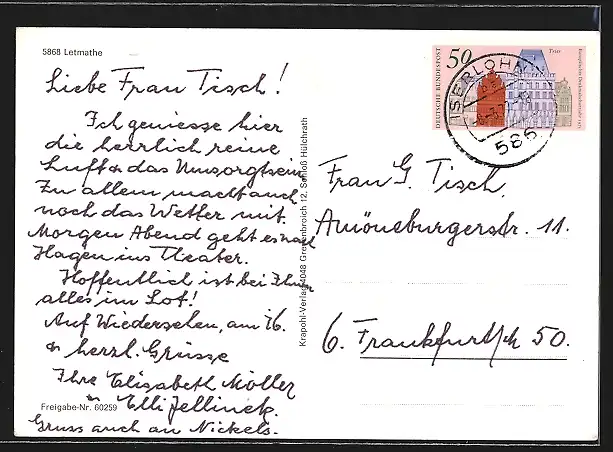 5868 Letmathe
Liebe Frau Tisch!
Ich geniesse hier
die herrlich reine
Luft & das Umsorgtsein
Zu allem macht auch
noch das Wetter mit.
Morgen Abend geht es nach
Hagen ins Theater.
Hoffentlich ist bei Ihnen
alles im Lot!
Auf Wiedersehen, am 16.
& herzl. Grüsse
Ihre Elisabeth Möller
u. Elli Jellineck.
Gruss auch an Nickels.
Freigabe-Nr. 60259
Krapohl-Verlag 4048 Grevenbroich 12, Schloß Hülchrath
DEUTSCHE BUNDESPOST
50
Trier
Europäisches Denkmalschutzjahr 1975
ISERLOHN
586
Frau G. Tisch,
Amöneburgerstr. 11.
6. Frankfurt/M 50.